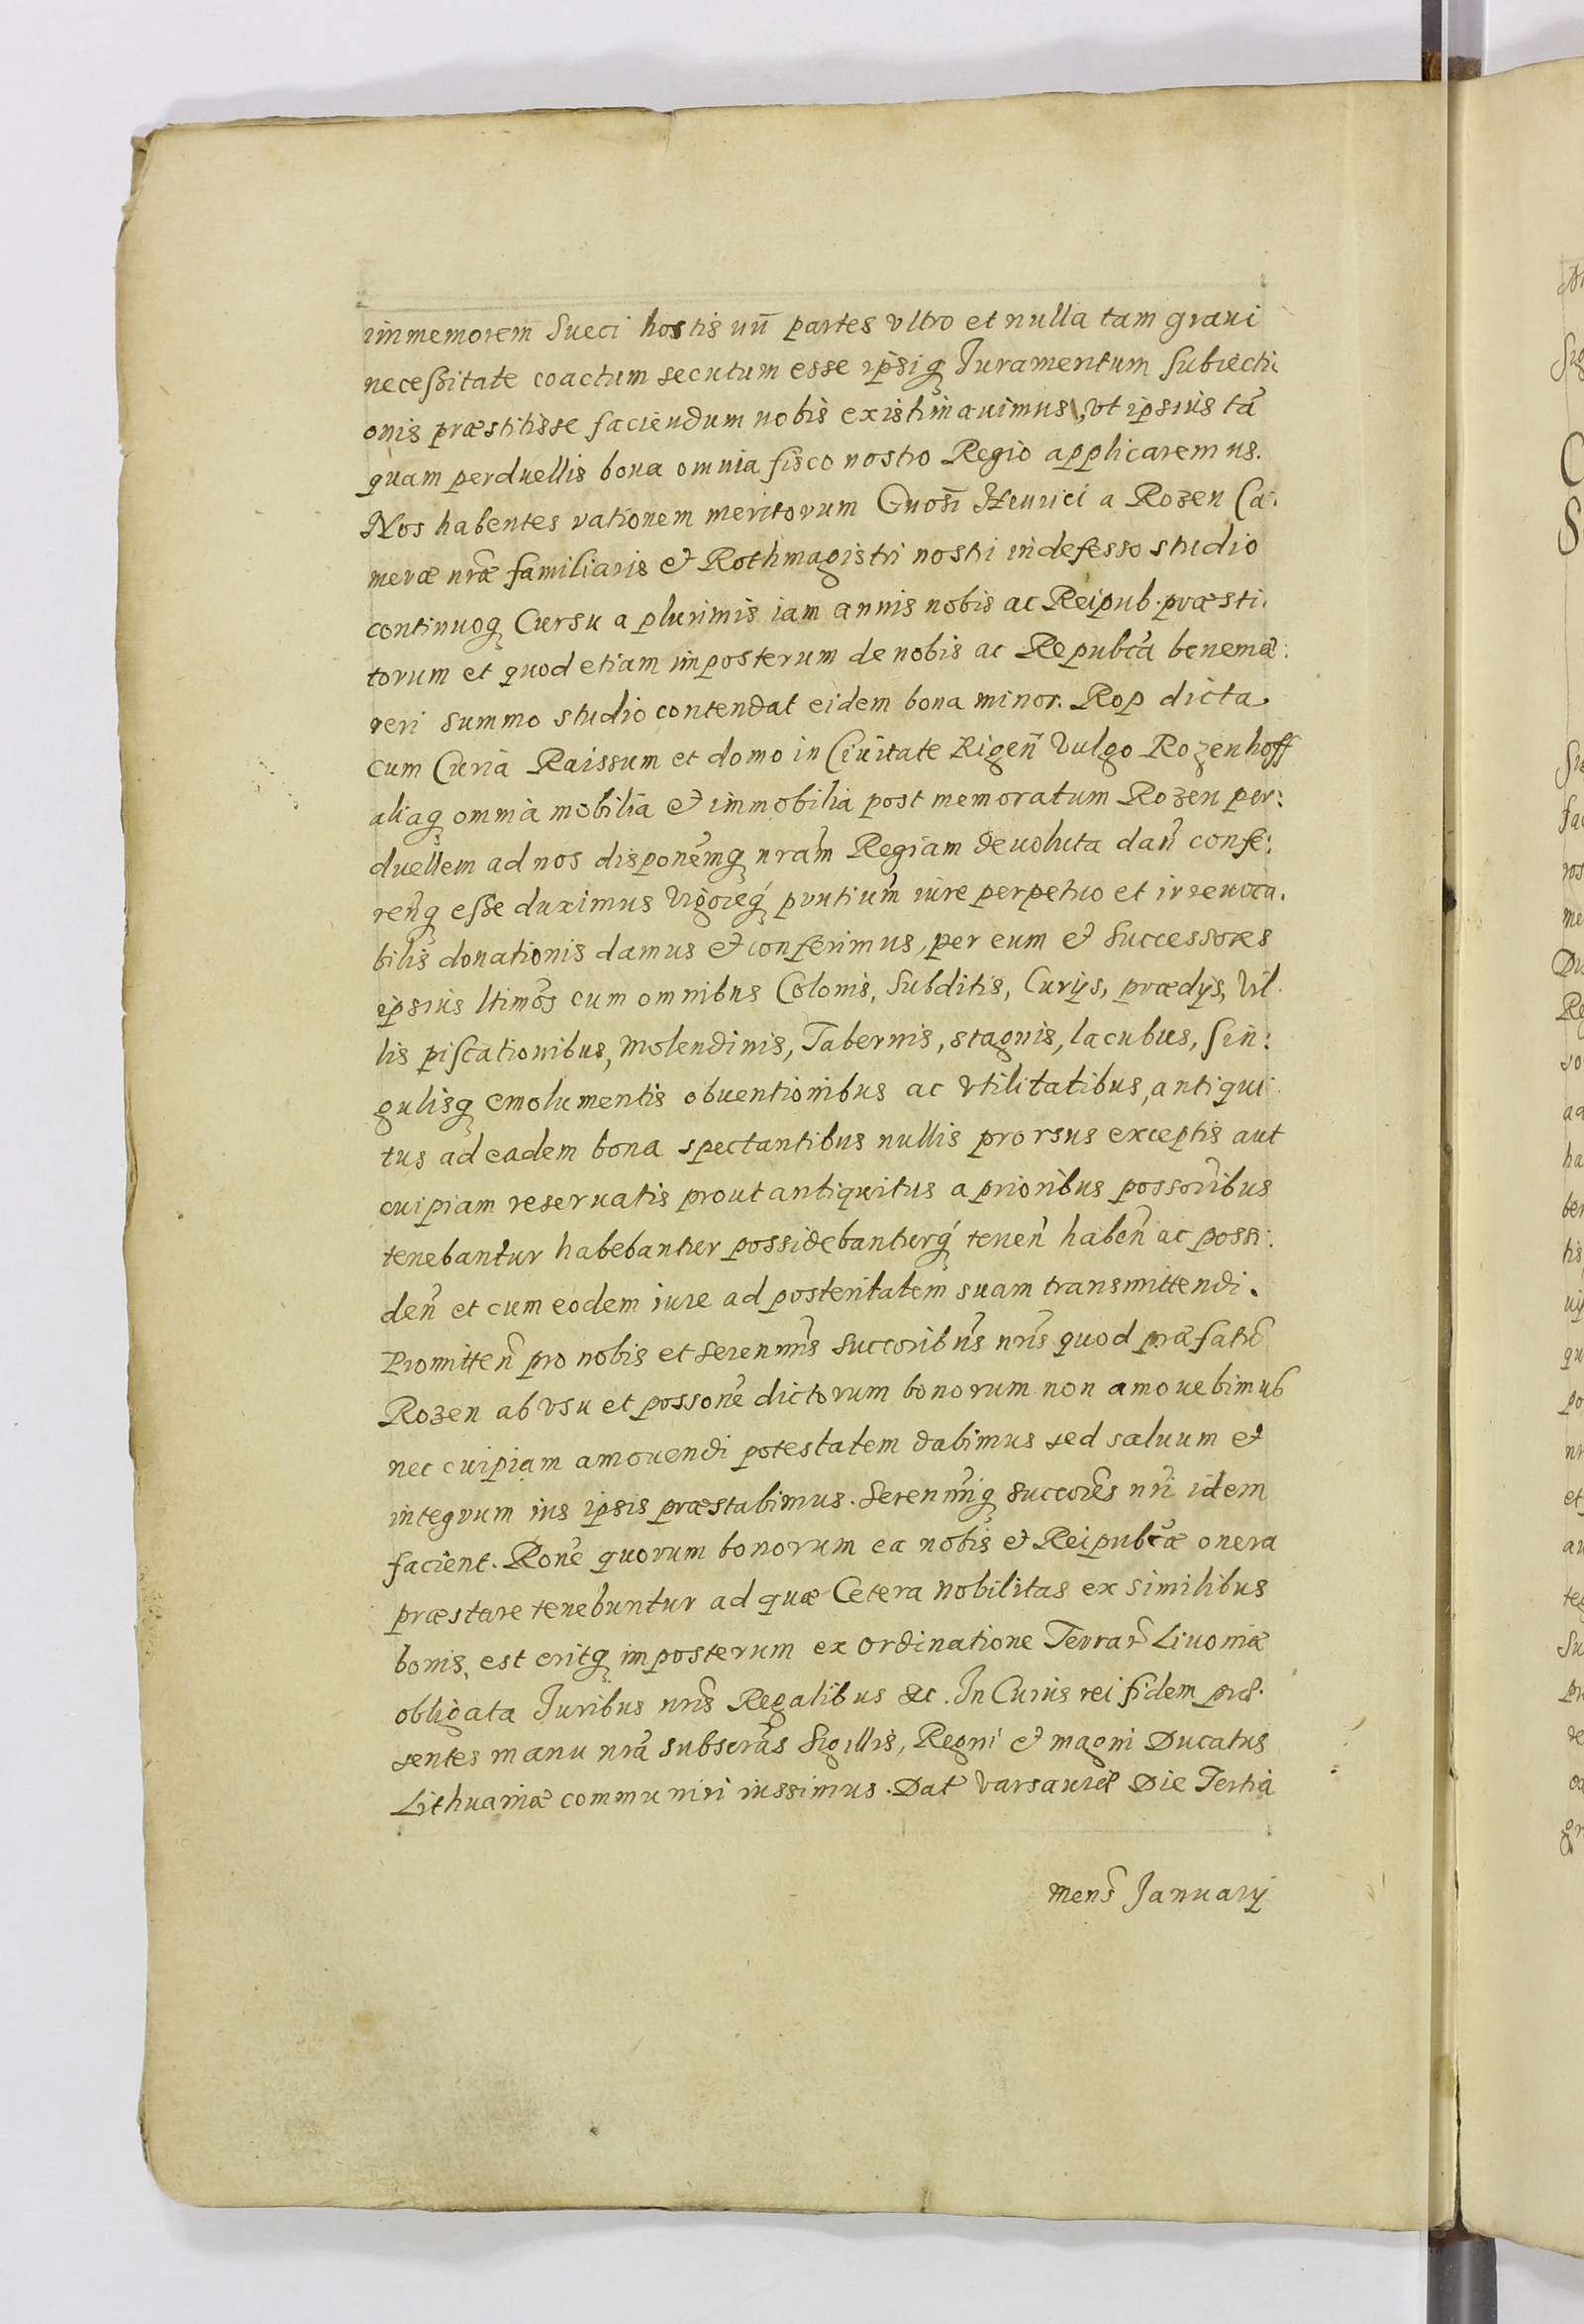 immemorem Sueci hostis nři partes vltro et nulla tam graui
necessitate coactum secutum esse ipsiq₃ Juramentum Subiecti
onis præstitisse faciendum nobis existimauimus, vt ipsius tã
quam perduellis bona omnia fisco nostro Regio applicaremus.
Nos habentes rationem meritorum Gnosi Henrici a Rozen Ca:
meræ nræ familiaris et Rothmagistri nostri indefesso studio
continuoq₃ Cursu a plurimis iam annis nobis ac Reipub. præsti.
torum et quod etiam imposterum de nobis ac Republcã beneme:
reri summo studio contendat eidem bona minor. Rop dicta
cum Curia Raissum et domo in Ciuitate Rigeñ Vulgo Rozenhoff
aliaq₃ omnia mobilia et immobilia post memoratum Rozen per:
duellem ad nos disponemq₃ nram Regiam deuoluta dañ confe:
reñq₃ esse duximus Vigoreq₃ pñtium iure perpetuo et irreuoca.
bilis donationis damus et conferimus, per eum et Successores
ipsius ltimos cum omnibus Colonis, Subditis, Curijs, prædijs, Vil.
lis piscationibus, Molendinis, Tabernis, stagnis, lacubus, sin:
gulisq₃ emolumentis obuentionibus ac vtilitatibus, antiqui
tus ad eadem bona spectantibus nullis prorsus exceptis aut
cuipiam reseruatis prout antiquitus a prioribus possoribus
tenebantur habebantur possidebanturq₃ teneñ habeñ ac possi:
deñ et cum eodem iure ad posteritatem suam transmittendi.
Promitteñ pro nobis et Serenmis Succoribus nris quod præfatũ
Rozen ab vsu et possone dictorum bonorum non amouebimus
nec cuipiam amouendi potestatem dabimus sed saluum et
integrum ius ipsis præstabimus. Serenmiq₃ succores nri idem
facient. Rone quorum bonorum ea nobis et Reipublcæ onera
præstare tenebuntur ad quæ Cetera nobilitas ex similibus
bonis, est eritq₃ imposterum ex ordinatione Terrar Liuoniæ
obligata Juribus nris Regalibus &c. In Cuius rei fidem præ.
sentes manu nra subscras Sigillis, Regni et magni Ducatus
Lithuaniæ communiri iussimus. Dat Varsauiæ Die Tertia
mens January